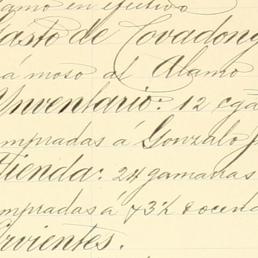 lamo en efectivo
Gasto de Covadong
á moso al Alamo
Ynventario: 12 cga
mpradas á Gonzalo
Tienda: 24 gamarras
mpradas á 73½ docena
rvientes.